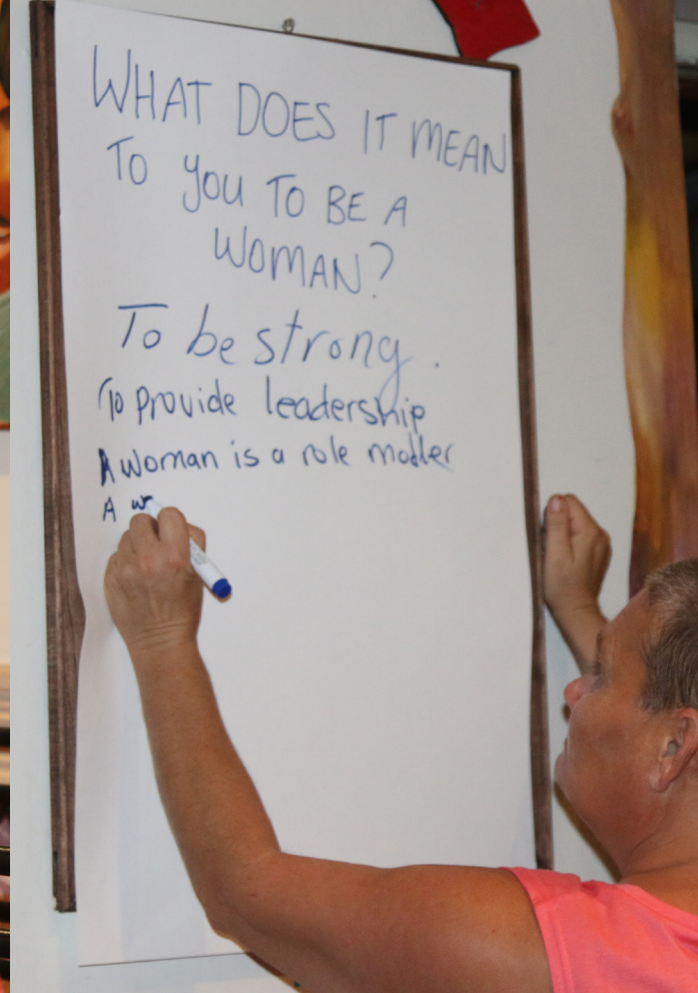 WHAT DOES IT MEAN
TO YOU TO BE A
WOMAN?
To be strong.
To provide leadership
A woman is a role modler
A w